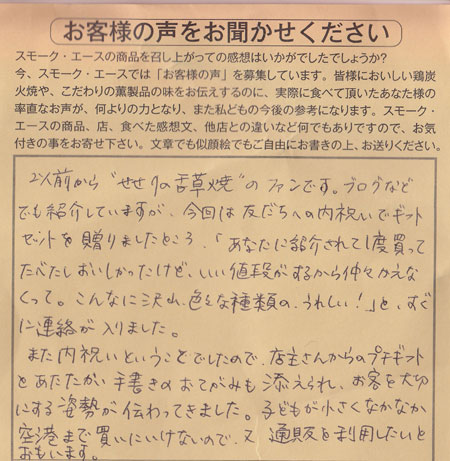 お客様の声をお聞かせください
スモーク・エースの商品を召し上がっての感想はいかがでしたでしょうか?
今、スモーク・エースでは「お客様の声」を募集しています。皆様においしい鶏炭
火焼や、こだわりの薫製品の味をお伝えするのに、実際に食べて頂いたあなた様の
率直なお声が、何よりの力となり、また私どもの今後の参考になります。スモーク・
エースの商品、店、食べた感想文、他店との違いなど何でもありですので、お気
付きの事をお寄せ下さい。文章でも似顔絵でもご自由にお書きの上、お送りください。
前から"せせりの
のファンです。ブログなど
でも紹介していますが、今回は友だちへの内祝いでギフト
セットを贈りましたところ、「あなたに紹介されて1度買って
たべたしおいしかったけど、いい値段がするから仲々かえな
くって。こんなに沢山、色々な種類の、うれしい!」と、すぐ
に連絡が入りました。
また内祝いということでしたので、店主さんからのプチギフト
とあたたかい手書きのおてがみも添えられ、お客を大切
にする姿勢が伝わってきました。子どもが小さくなかなか
空港まで買いにいけないので、又通販を利用したいと
おもいます。